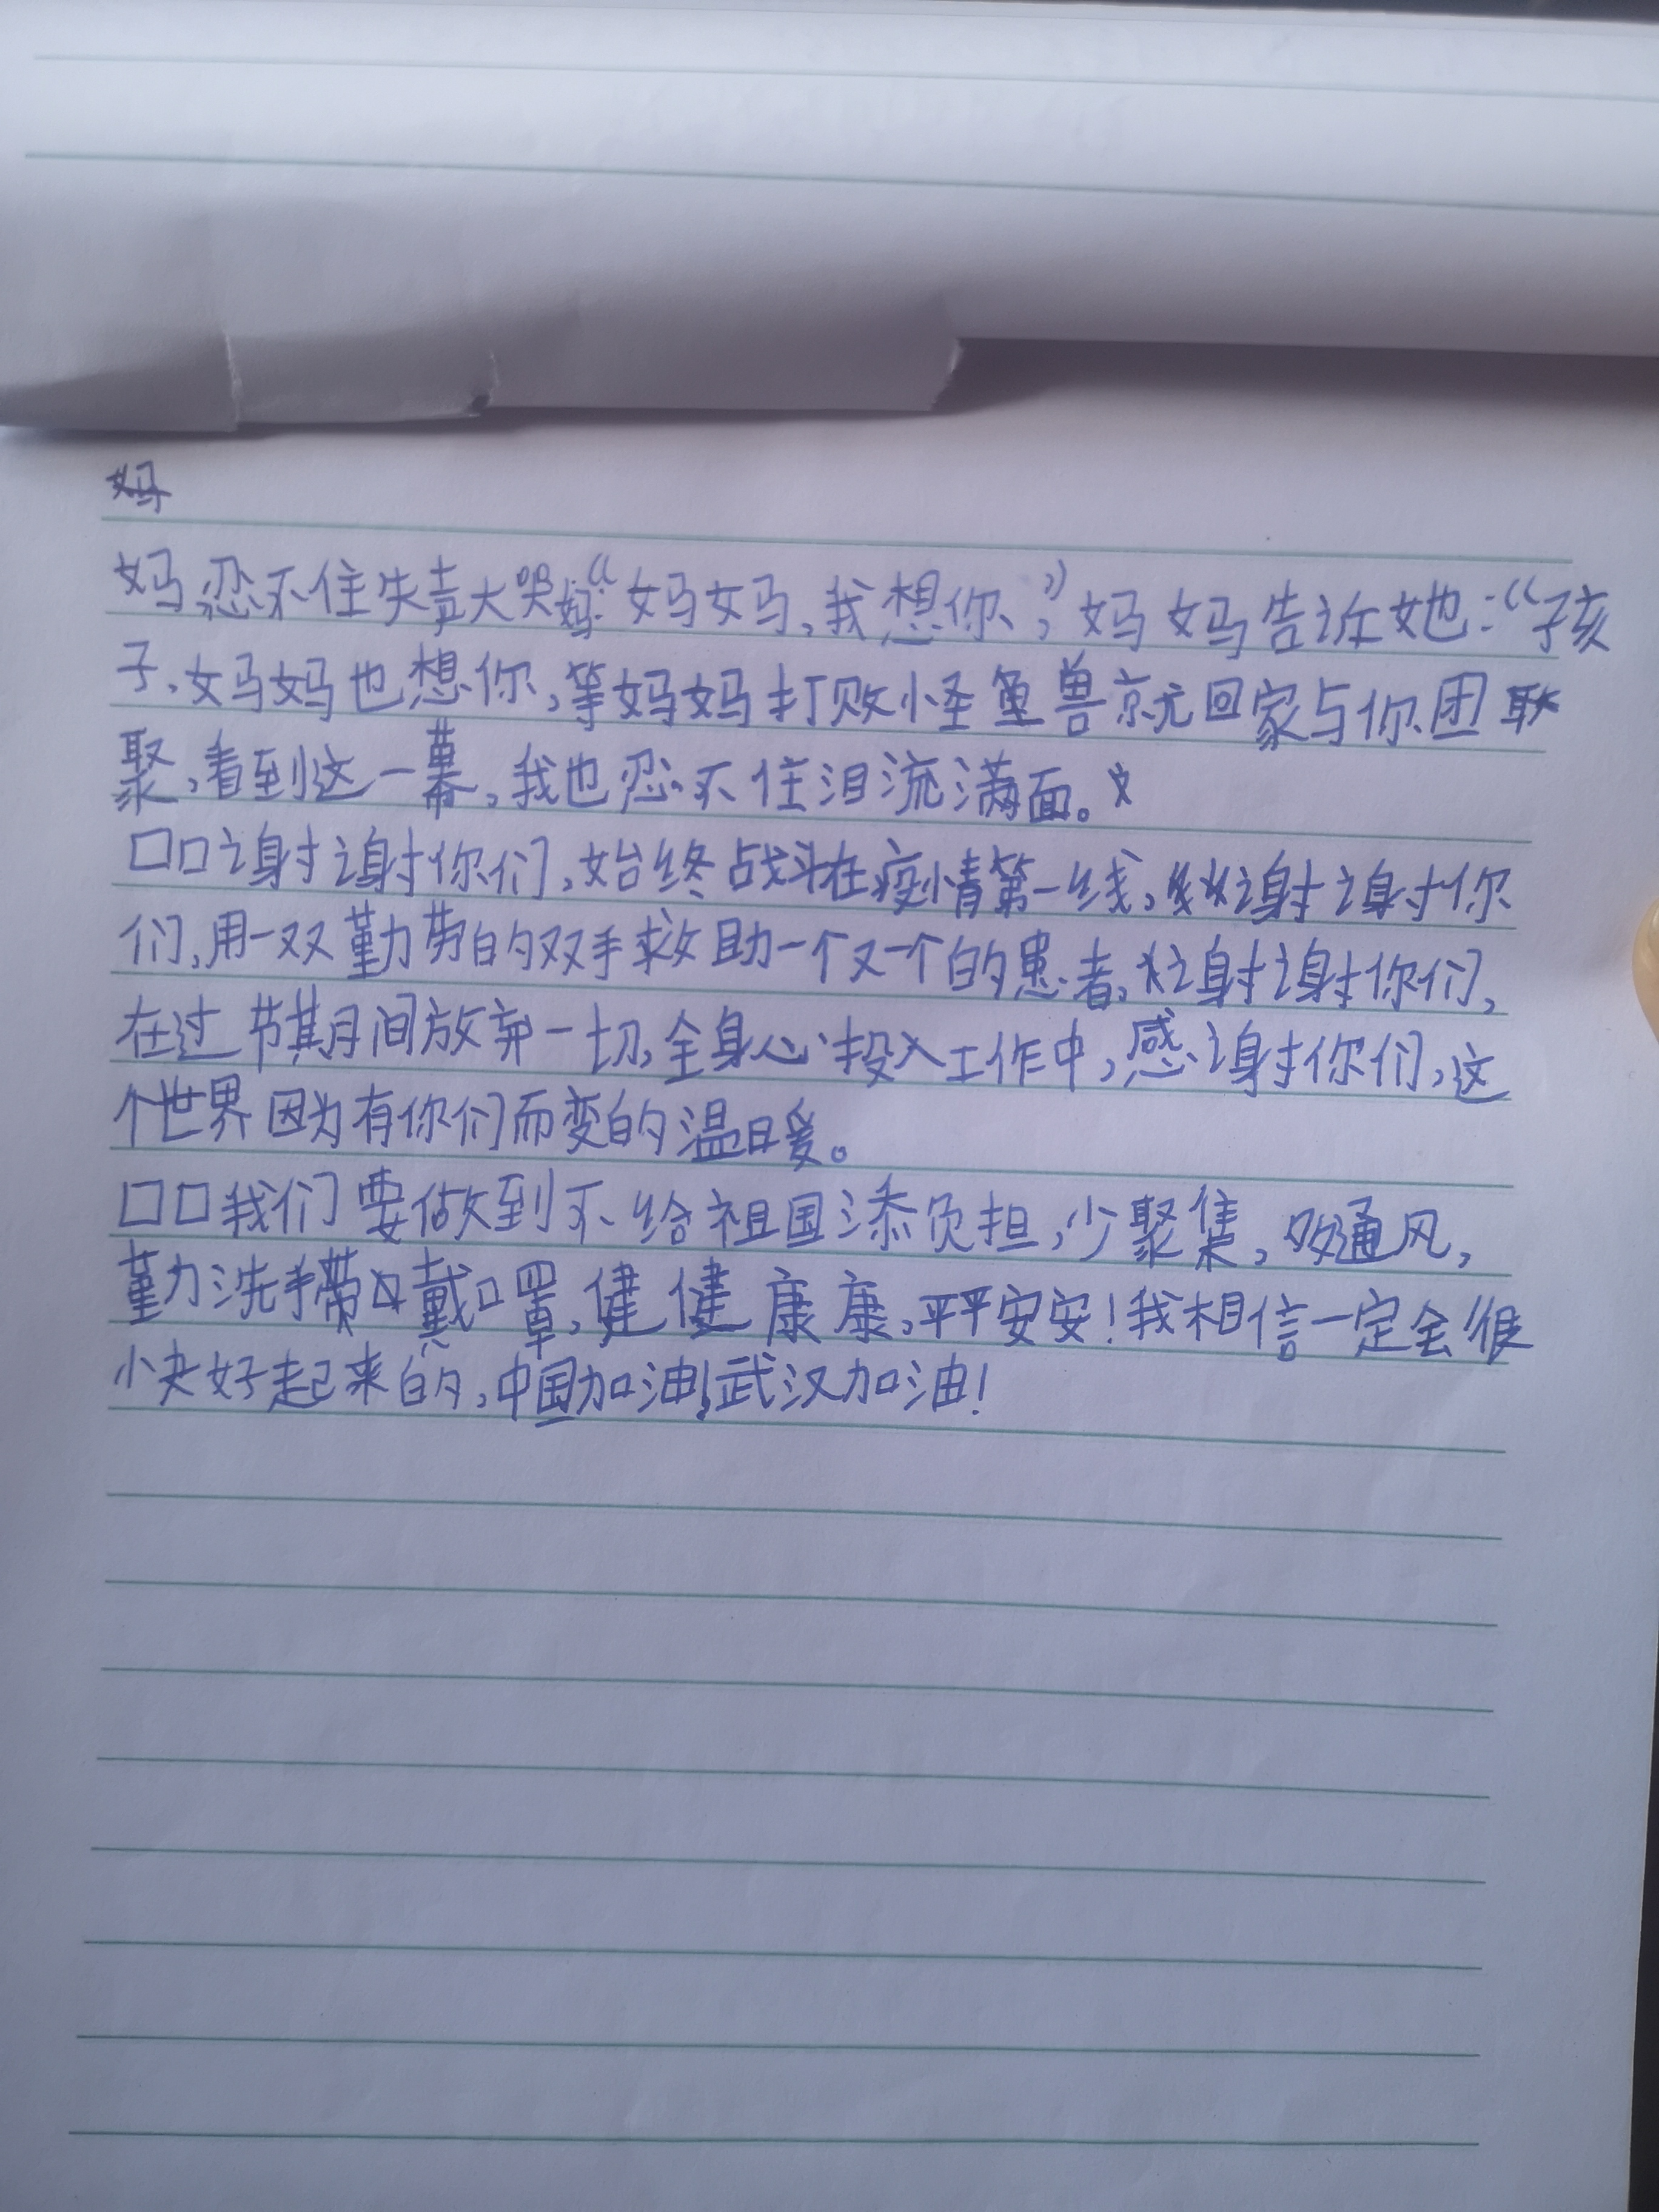 妈,忍不住失声大哭:“妈妈,我想你,”妈妈告诉她:“孩
子,妈妈也想你,等妈妈打败怪兽就回家与你团
聚,看到这一幕,我也忍不住泪流满面。
口口谢谢你们,始终战斗在疫情第一线,谢谢你
们,用一双勤劳的双手救助一个又一个的患者,谢谢你们,
在过节其月间放弃一切,全身心投入工作中,感谢你们,这
个世界因为有你们而变的温暖。
口口我们要做到不给祖国添负担,少聚集,多通风,
勤洗手戴口罩,健健康康,平平安安!我相信一定会很
快好起来的,中国加油!武汉加油!